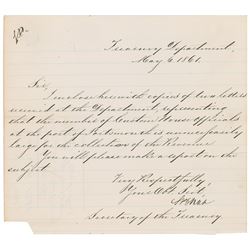 Treasury Department,
May 6, 1861.
Sir,
I enclose herewith copies of two letters
received at the Department, representing
that the number of Custom House Officials
at the port of Portsmouth is unnecessarily
large for the collection of the Revenue.
You will please make a report on the
subject.
Very Respectfully,
Your Obt. Svt.
Secretary of the Treasury